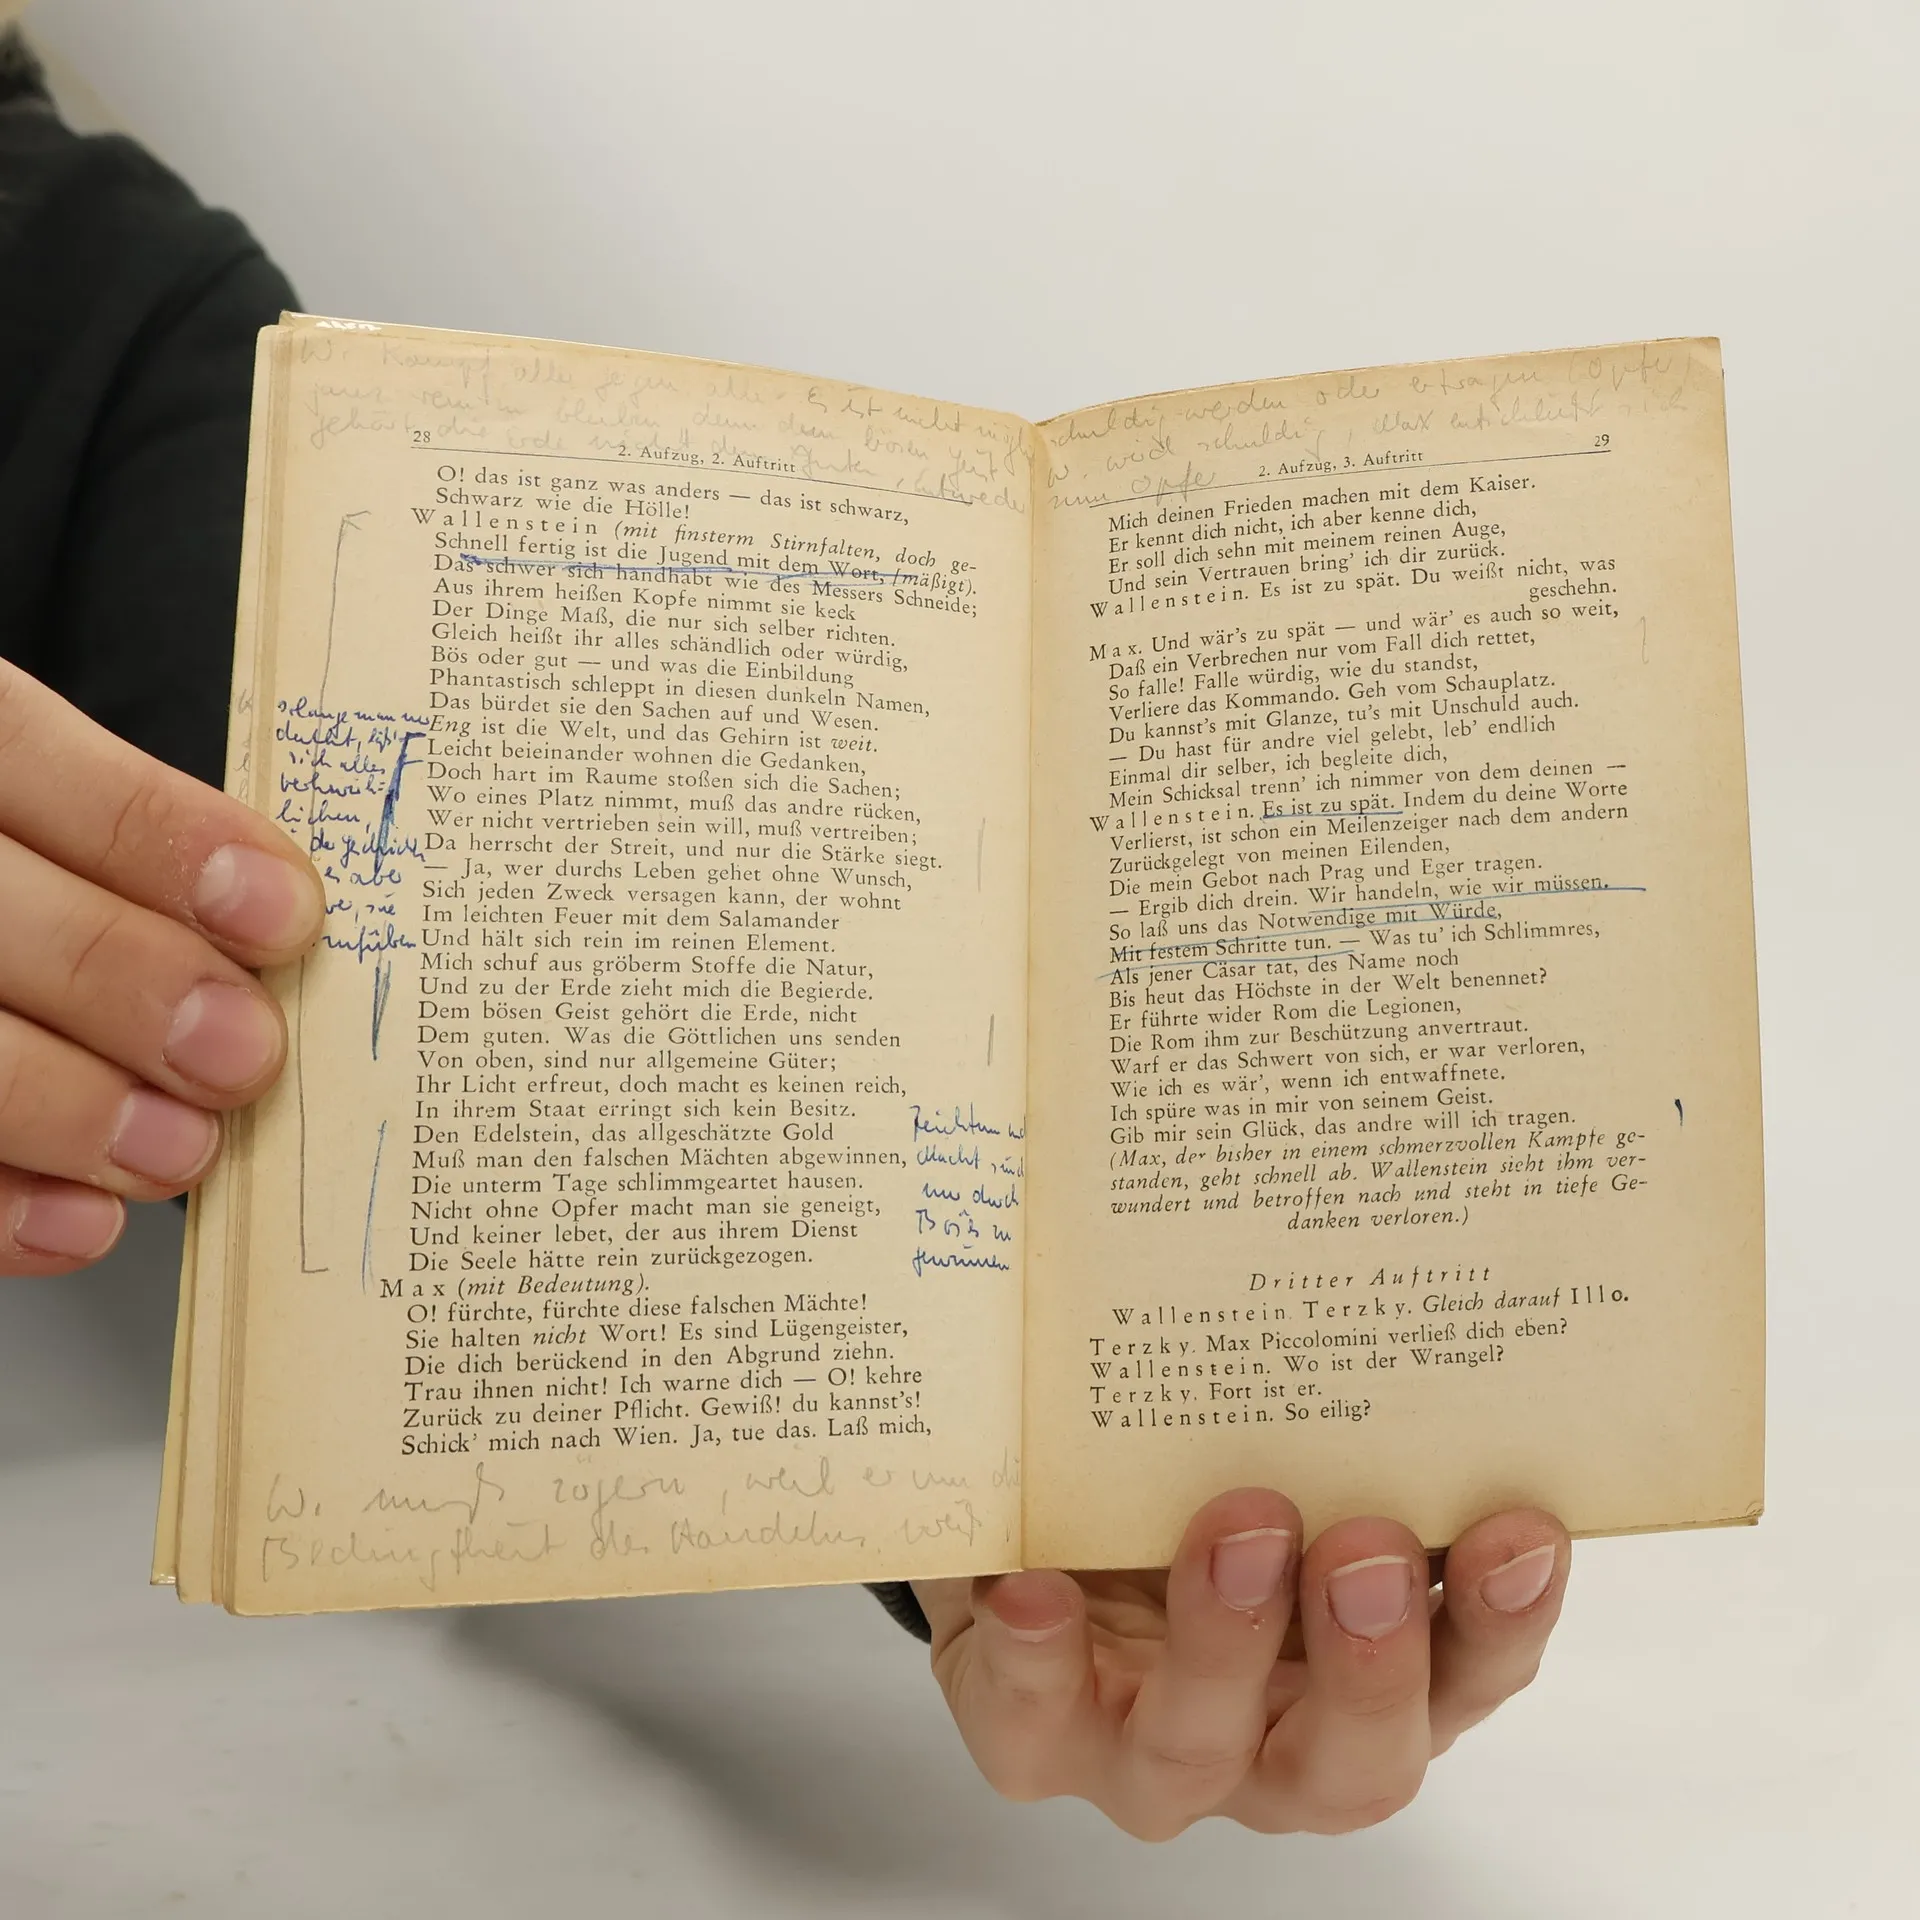 W. Kampf aller gegen alle. Es ist nicht
ganz rein zu bleiben denn dem bösen Geist
gehört die Erde nicht dem guten, entweder
28
2. Aufzug, 2. Auftritt
O! das ist ganz was anders — das ist schwarz,
Schwarz wie die Hölle!
Wallenstein (mit finsterm Stirnfalten, doch ge-
Schnell fertig ist die Jugend mit dem Wort, [mäßigt).
Das schwer sich handhabt wie des Messers Schneide;
Aus ihrem heißen Kopfe nimmt sie keck
Der Dinge Maß, die nur sich selber richten.
Gleich heißt ihr alles schändlich oder würdig,
Bös oder gut — und was die Einbildung
Phantastisch schleppt in diesen dunkeln Namen,
Das bürdet sie den Sachen auf und Wesen.
Eng ist die Welt, und das Gehirn ist weit.
Leicht beieinander wohnen die Gedanken,
Doch hart im Raume stoßen sich die Sachen;
Wo eines Platz nimmt, muß das andre rücken,
Wer nicht vertrieben sein will, muß vertreiben;
Da herrscht der Streit, und nur die Stärke siegt.
— Ja, wer durchs Leben gehet ohne Wunsch,
Sich jeden Zweck versagen kann, der wohnt
Im leichten Feuer mit dem Salamander
Und hält sich rein im reinen Element.
Mich schuf aus gröberm Stoffe die Natur,
Und zu der Erde zieht mich die Begierde.
Dem bösen Geist gehört die Erde, nicht
Dem guten. Was die Göttlichen uns senden
Von oben, sind nur allgemeine Güter;
Ihr Licht erfreut, doch macht es keinen reich,
In ihrem Staat erringt sich kein Besitz.
Den Edelstein, das allgeschätzte Gold
Muß man den falschen Mächten abgewinnen,
Die unterm Tage schlimmgeartet hausen.
Nicht ohne Opfer macht man sie geneigt,
Und keiner lebet, der aus ihrem Dienst
Die Seele hätte rein zurückgezogen.
Max (mit Bedeutung).
O! fürchte, fürchte diese falschen Mächte!
Sie halten nicht Wort! Es sind Lügengeister,
Die dich berückend in den Abgrund ziehn.
Trau ihnen nicht! Ich warne dich — O! kehre
Zurück zu deiner Pflicht. Gewiß! du kannst's!
Schick' mich nach Wien. Ja, tue das. Laß mich,
solange man nur
denkt, läßt
sich alles
verwirk-
lichen,
es aber
Reichtum und
Macht sind
nur durch
Böses zu
gewinnen
W. muß zögern, weil er um die
Bedingtheit des Handelns weiß
schuldig werden oder ertragen (Opfer)
W. wird schuldig, Max entschließt sich
zum Opfer
29
2. Aufzug, 3. Auftritt
Mich deinen Frieden machen mit dem Kaiser.
Er kennt dich nicht, ich aber kenne dich,
Er soll dich sehn mit meinem reinen Auge,
Und sein Vertrauen bring' ich dir zurück.
Wallenstein. Es ist zu spät. Du weißt nicht, was
geschehn.
Max. Und wär's zu spät — und wär' es auch so weit,
Daß ein Verbrechen nur vom Fall dich rettet,
So falle! Falle würdig, wie du standst,
Verliere das Kommando. Geh vom Schauplatz.
Du kannst's mit Glanze, tu's mit Unschuld auch.
— Du hast für andre viel gelebt, leb' endlich
Einmal dir selber, ich begleite dich,
Mein Schicksal trenn' ich nimmer von dem deinen —
Wallenstein. Es ist zu spät. Indem du deine Worte
Verlierst, ist schon ein Meilenzeiger nach dem andern
Zurückgelegt von meinen Eilenden,
Die mein Gebot nach Prag und Eger tragen.
— Ergib dich drein. Wir handeln, wie wir müssen.
So laß uns das Notwendige mit Würde,
Mit festem Schritte tun. — Was tu' ich Schlimmres,
Als jener Cäsar tat, des Name noch
Bis heut das Höchste in der Welt benennet?
Er führte wider Rom die Legionen,
Die Rom ihm zur Beschützung anvertraut.
Warf er das Schwert von sich, er war verloren,
Wie ich es wär', wenn ich entwaffnete.
Ich spüre was in mir von seinem Geist.
Gib mir sein Glück, das andre will ich tragen.
(Max, der bisher in einem schmerzvollen Kampfe ge-
standen, geht schnell ab. Wallenstein sieht ihm ver-
wundert und betroffen nach und steht in tiefe Ge-
danken verloren.)
Dritter Auftritt
Wallenstein. Terzky. Gleich darauf Illo.
Terzky. Max Piccolomini verließ dich eben?
Wallenstein. Wo ist der Wrangel?
Terzky. Fort ist er.
Wallenstein. So eilig?